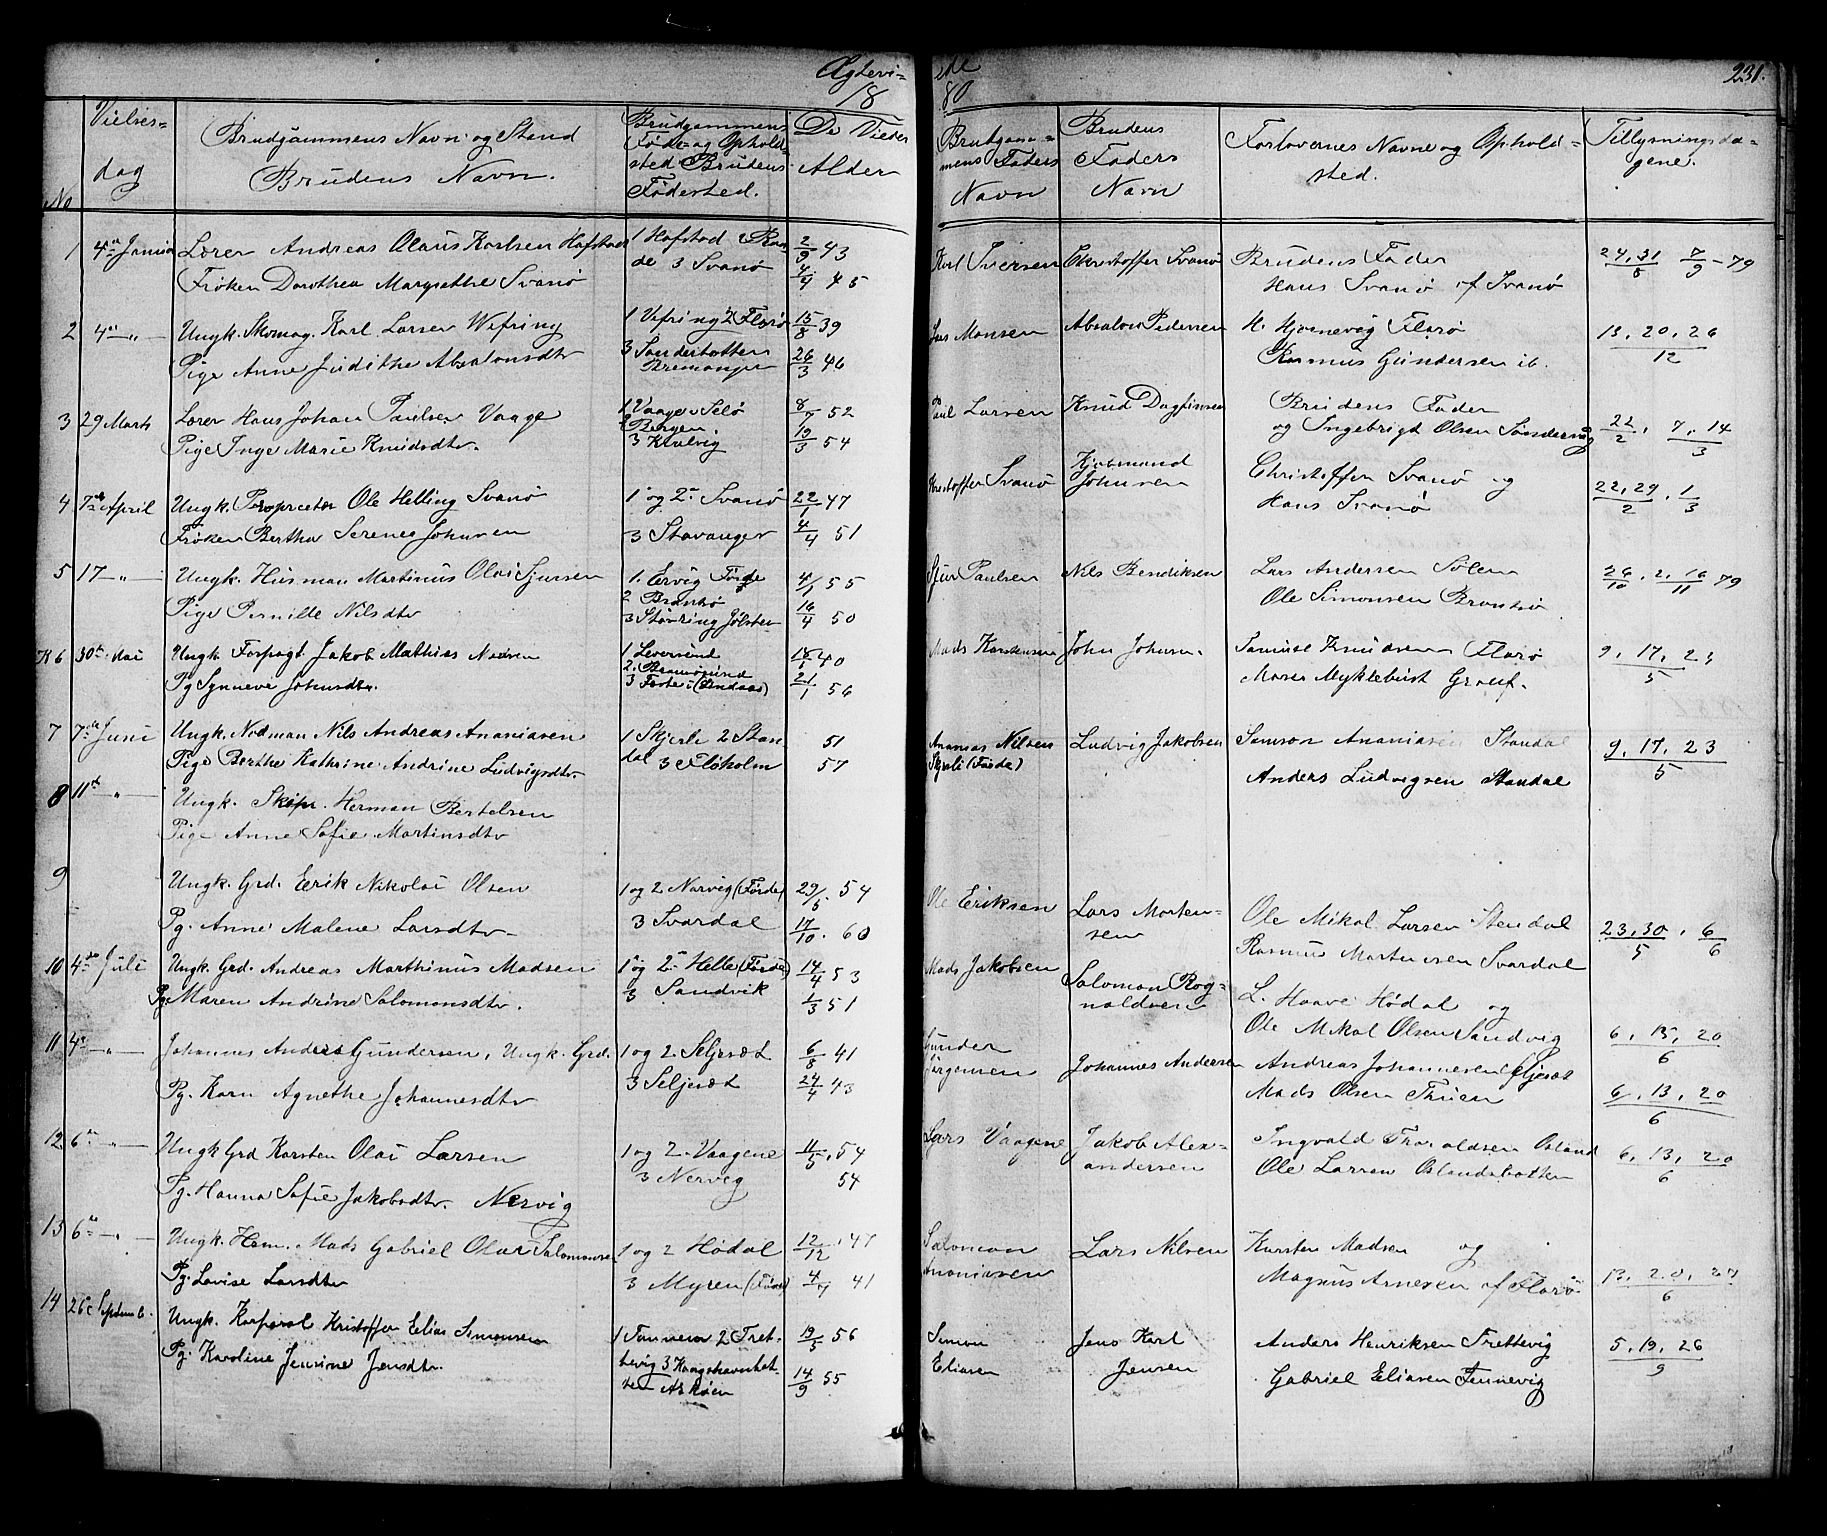 Ægtevi- ede
18 80
231.
No
Vielses-
dag
Brudgammens Navn og Stand
Brudens Navn.
Brudgammens
Føde- og Ophold-
sted Brudens
Fødested.
De Vieder
Alder
Brudgam-
mens Faders
Navn
Brudens
Faders
Navn
Forlovernes Navne og Ophold-
sted.
Tillysningsda-
gene.
1 4de Januar Lærer Andreas Olaus Karlsen Hafstad 1 Hafstad 2 2/9 43 Karl Iversen Christoffer Svanø Brudens Fader 24, 31/8 7/9 - 79
Frøken Dorothea Margrethe Svanø de 3 Svanø 4/4 45 Hans Svanø af Svanø
2 4de -"- Ungk. Skomag. Karl Larsen Wefring 1 Vefring 2 Florø 15/8 39 Lars Monsen Absalon Pedersen H. Hjornevig Florø 13, 20, 26/12
Pige Anne Judithe Absalonsdtr 3 Sanderbotten 26/3 46 Rasmus Gundersen ib.
Bremanger
3 29 Marts Lærer Hans Johan Paulsen Vaage 1 Vaage Selø 52 Paul Larsen Knud Dagfinsen Brudens Fader 22/2, 7, 14/3
2 Bergen og Ingebrigt Olsen
Pige Inge Marie Knudsdtr. 3 19/3 54
4 7de April Ungk. Proprietær Ole Helling Svanø 1 og 2 Svanø 22/1 47 Christoffer Svanø Kjøbmand Christoffer Svanø og 22, 29/2, 1/3
Frøken Bertha Serene Johnsen 3 Stavanger 4/4 51 Johnsen Hans Svanø
5 17 -"- Ungk. Husman Martinus Olai Sjursen 1. Ervig Førde 4/1 55 Sjur Paulsen Nils Bendiksen Lars Andersen 26/10, 2, 16/11 79
Pige Pernilde Nilsdtr 2 Brandsø 16/4 50 Ole Simonsen
3 Støvring Jølster
K 6 30te Mai Ungk. Forpagt. Jakob Mathias Madsen 1 Leversund 18/1 40 Mads Karstensen John Johnsen Samuse Knudsen Florø 9, 17, 23/5
Pg Synneve Johnsdtr. 21/1 56 Myklebust
7 7de Juni Ungk. Nodman Nils Andreas Ananiasen 1 Skjerli 2 Stan 51 Ananias Nilsen Ludvig Jakobsen Samson Ananiasen Standal 9, 17, 23/5
Pige Berthe Kathrine Andrine Ludvigsdtr dal 3 Floholm 57 Skjerli (Førde) Anders Ludvigsen Standal
8 11te " Ungk. Skipr. Herman Bertelsen
Pige Anne Sofie Martinsdtr
9 Ungk. Grd. Eerik Nikolai Olsen 1 og 2 Norvig (Førde) 29/5 54 Ole Eriksen Lars Morten- Ole Mikal Larsen Stendal 23, 30/5, 6/6
Pg. Anne Malene Larsdtr 3 Svardal 17/10. 60 sen Rasmus Mortensen Svardal
10 4de Juli Ungk. Grd. Andreas Marthinus Madsen 1 og 2 Helle (Førde) 14/4 53 Mads Jakobsen Salomon Rog- L. Haave Hødal og 6, 13, 20/6
Pg. Maren Andrine Salomonsdtr. 3 Sandvik 1/3 51 naldsen Ole Mikal Olsen Sandvig
11 4de -"- Johannes Anders Gundersen, Ungk. Grd. 1 og 2 Seljesæt 6/8 41 Gunder Johannes Andersen Andreas Johannesen Seljesæt 6, 13, 20/6
Pg. Karn Agnethe Johannesdtr 3 Seljesæt 24/4 43 Jørgensen Mads Olsen
12 6te " Ungk Grd Karsten Olai Larsen 1 og 2 Vaagene 11/5. 54 Lars Vaagene Jakob Alex- Ingvald Thoraldsen Osland 6, 13, 20/6
Pg. Hanna Sofie Jakobsdtr. Nervig 3 Nervig 54 andersen Ole Larsen Oslandsbotten
13 6te -"- Ungk. Hsm. Mads Gabriel Olai Salomonsen 1 og 2 Hødal 12/12. 47 Salomon Lars Nilsen Karsten Madsen og 13, 20, 27/6
Pg. Lovise Larsdtr 3 Myren (Førde) 41 Ananiasen Magnus Arnesen af Florø
14 26 Septemb. Ungk. Korporal Kristoffer Elias Simonsen 1 2 Tret- 19/5 56 Simon Jens Karl Anders Henriksen Trettevig 5, 19, 26/9
Pg. Karoline Jensine Jensdtr. tevig 3 14/9 55 Eliasen Jensen Gabriel Eliasen
Askøen